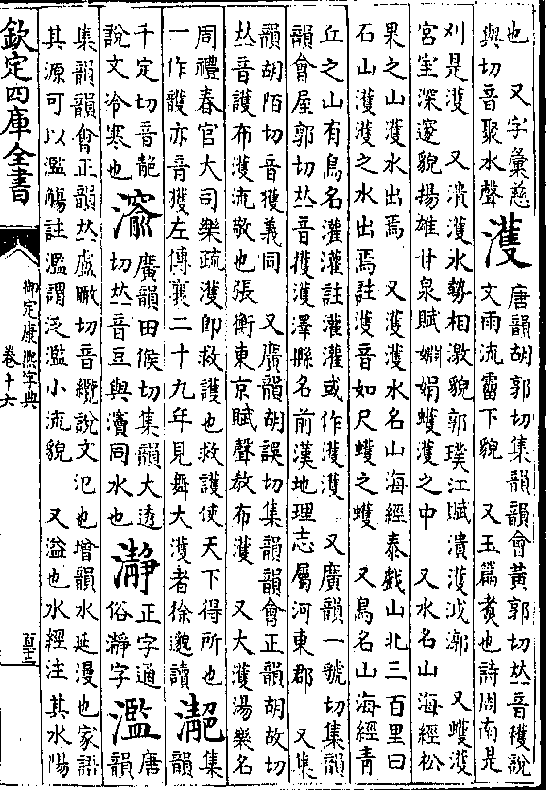 也　又字彙慈
與切音聚水聲
濩
唐韻胡郭切集韻韻會黃郭切𠀤音穫說
文雨流霤下貌　又玉篇煑也詩周南是
刈是濩　又濆濩水勢相激貌郭璞江賦濆濩泧漷　又蠖濩
宮室深邃貌揚雄甘泉賦蜵蜎蠖濩之中　又水名山海經松
果之山濩水出焉　又濩濩水名山海經泰戲山北三百里曰
石山濩濩之水出焉註濩音如尺蠖之蠖　又鳥名山海經青
丘之山有鳥名灌灌註灌灌或作濩濩　又廣韻一虢切集韻
韻會屋郭切𠀤音擭濩澤縣名前漢地理志屬河東郡　又集
韻胡陌切音獲義同　又廣韻胡誤切集韻韻會正韻胡故切
𠀤音護布濩流散也張衡東京賦聲敎布濩　又大濩湯樂名
周禮春官大司樂疏濩卽救護也救護使天下得所也
一作頀亦音獲左傳襄二十九年見舞大濩者徐邈讀
集
韻
千定切音靘
說文冷寒也
廣韻田候切集韻大透
切𠀤音豆與瀆同水也
瀞
正字通
俗瀞字
濫
唐
韻
集韻韻會正韻𠀤盧瞰切音纜說文氾也增韻水延漫也家語
其源可以濫觴註濫謂泛濫小流貌　又溢也水經注其水陽
欽定四庫全書
御定康熙字典
卷十六